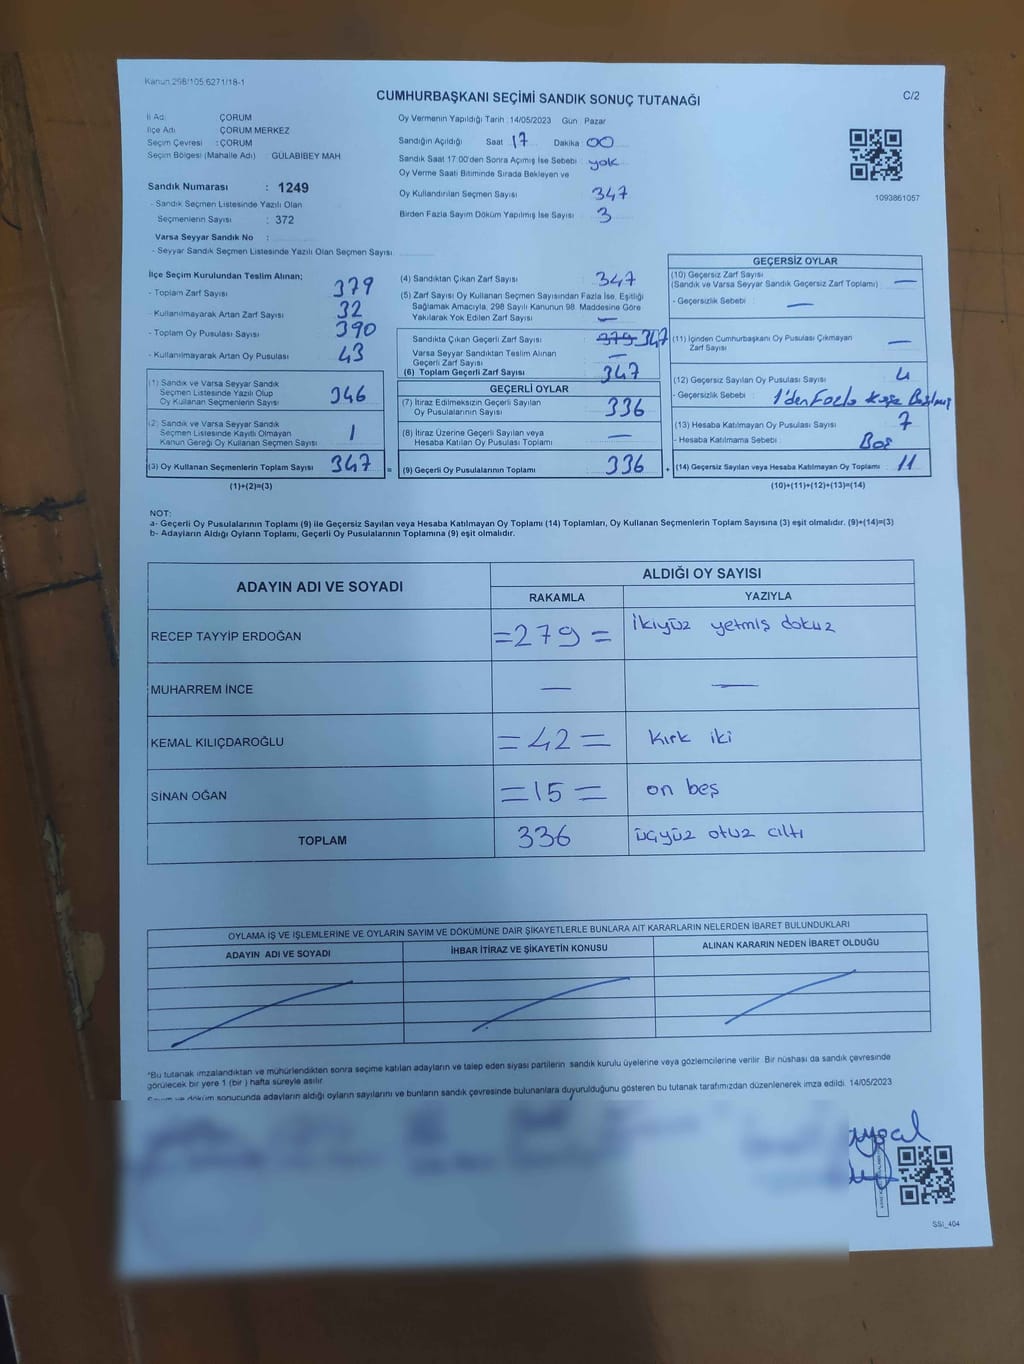 Kanun 298/105 6271/18-1
CUMHURBAŞKANI SEÇİMİ SANDIK SONUÇ TUTANAĞI
C/2
İl Adı ÇORUM
İlçe Adı ÇORUM MERKEZ
Seçim Çevresi : ÇORUM
Seçim Bölgesi (Mahalle Adı) GÜLABİBEY MAH
Sandık Numarası : 1249
- Sandık Seçmen Listesinde Yazılı Olan
Seçmenlerin Sayısı : 372
Varsa Seyyar Sandık No :
- Seyyar Sandık Seçmen Listesinde Yazılı Olan Seçmen Sayısı
Oy Vermenin Yapıldığı Tarih : 14/05/2023 Gün : Pazar
Sandığın Açıldığı Saat 17 Dakika 00
Sandık Saat 17:00'den Sonra Açımış İse Sebebi : yok
Oy Verme Saati Bitiminde Sırada Bekleyen ve
Oy Kullandırılan Seçmen Sayısı 347
Birden Fazla Sayım Döküm Yapılmış İse Sayısı 3
1093861057
İlçe Seçim Kurulundan Teslim Alınan;
- Toplam Zarf Sayısı 379
- Kullanılmayarak Artan Zarf Sayısı 32
- Toplam Oy Pusulası Sayısı 390
- Kullanılmayarak Artan Oy Pusulası 43
(1) Sandık ve Varsa Seyyar Sandık
Seçmen Listesinde Yazılı Olup
Oy Kullanan Seçmenlerin Sayısı 346
(2) Sandık ve Varsa Seyyar Sandık
Seçmen Listesinde Kayıtlı Olmayan
Kanun Gereği Oy Kullanan Seçmen Sayısı 1
(3) Oy Kullanan Seçmenlerin Toplam Sayısı 347 =
(1)+(2)=(3)
(4) Sandıktan Çıkan Zarf Sayısı 347
(5) Zarf Sayısı Oy Kullanan Seçmen Sayısından Fazla İse, Eşitliği
Sağlamak Amacıyla, 298 Sayılı Kanunun 98. Maddesine Göre
Yakılarak Yok Edilen Zarf Sayısı —
Sandıkta Çıkan Geçerli Zarf Sayısı 379 347
Varsa Seyyar Sandıktan Teslim Alınan
Geçerli Zarf Sayısı —
(6) Toplam Geçerli Zarf Sayısı 347
GEÇERLİ OYLAR
(7) İtiraz Edilmeksizin Geçerli Sayılan
Oy Pusulalarının Sayısı 336
(8) İtiraz Üzerine Geçerli Sayılan veya
Hesaba Katılan Oy Pusulası Toplamı —
(9) Geçerli Oy Pusulalarının Toplamı 336 +
GEÇERSİZ OYLAR
(10) Geçersiz Zarf Sayısı
(Sandık ve Varsa Seyyar Sandık Geçersiz Zarf Toplamı) —
- Geçersizlik Sebebi : —
(11) İçinden Cumhurbaşkanı Oy Pusulası Çıkmayan
Zarf Sayısı —
(12) Geçersiz Sayılan Oy Pusulası Sayısı 4
- Geçersizlik Sebebi : 1'den Fazla Kaşe Basılmış
(13) Hesaba Katılmayan Oy Pusulası Sayısı 7
- Hesaba Katılmama Sebebi : Boş
(14) Geçersiz Sayılan veya Hesaba Katılmayan Oy Toplamı 11
(10)+(11)+(12)+(13)=(14)
NOT:
a- Geçerli Oy Pusulalarının Toplamı (9) ile Geçersiz Sayılan veya Hesaba Katılmayan Oy Toplamı (14) Toplamları, Oy Kullanan Seçmenlerin Toplam Sayısına (3) eşit olmalıdır. (9)+(14)=(3)
b- Adayların Aldığı Oyların Toplamı, Geçerli Oy Pusulalarının Toplamına (9) eşit olmalıdır.
ADAYIN ADI VE SOYADI
ALDIĞI OY SAYISI
RAKAMLA YAZIYLA
RECEP TAYYİP ERDOĞAN =279= İkiyüz yetmiş dokuz
MUHARREM İNCE — —
KEMAL KILIÇDAROĞLU =42= kırk iki
SİNAN OĞAN =15= on beş
TOPLAM 336 üçyüz otuz altı
OYLAMA İŞ VE İŞLEMLERİNE VE OYLARIN SAYIM VE DÖKÜMÜNE DAİR ŞİKAYETLERLE BUNLARA AİT KARARLARIN NELERDEN İBARET BULUNDUKLARI
ADAYIN ADI VE SOYADI İHBAR İTİRAZ VE ŞİKAYETİN KONUSU ALINAN KARARIN NEDEN İBARET OLDUĞU
*Bu tutanak imzalandıktan ve mühürlendikten sonra seçime katılan adayların ve talep eden siyasi partilerin sandık kurulu üyelerine veya gözlemcilerine verilir. Bir nüshası da sandık çevresinde
görülecek bir yere 1 (bir) hafta süreyle asılır.
Sayım ve döküm sonucunda adayların aldığı oyların sayılarını ve bunların sandık çevresinde bulunanlara duyurulduğunu gösteren bu tutanak tarafımızdan düzenlenerek imza edildi. 14/05/2023
SSI_404